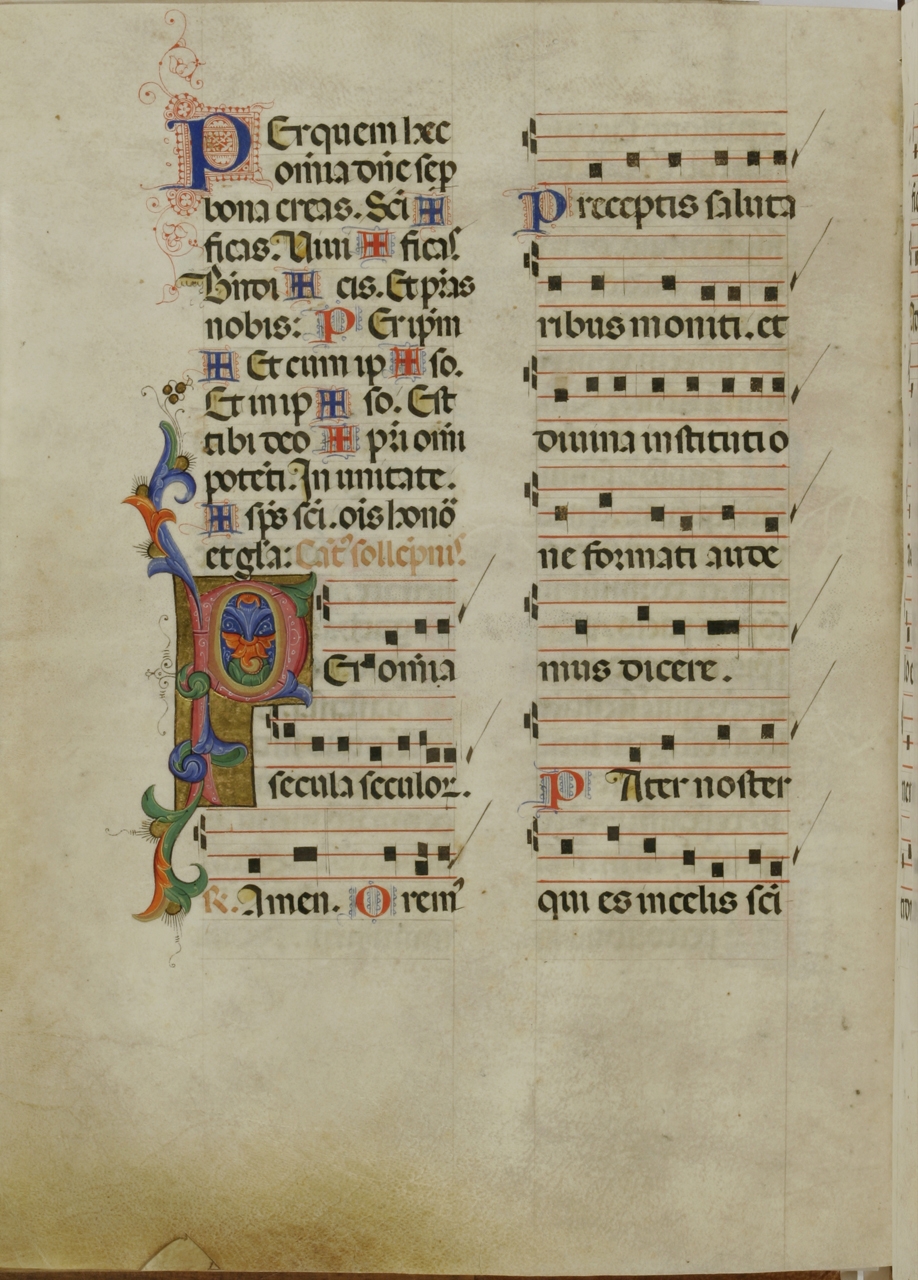 PErquem hec
om̄ia dn̄e sēp
bona creas. Sc̄i ✠
ficas. Uiui ✠ ficas.
Bn̄di ✠ cis. Et p̄stas
nobis: PEr ip̄m
✠ Et cum ip ✠ so.
Et in ip ✠ so. Est
tibi deo ✠ pr̄i om̄i
potēti. In unitate.
✠ sp̄s sc̄i. ois honō
et gl̄a: Cāt᾽ sollēpnis.
PEr om̄ia
secula seculoꝝ.
℟. Amen. Orem᾽
Preceptis saluta
ribus moniti. et
diuina institutio
ne formati aude
mus dicere.
PAter noster
qui es in celis sc̄i